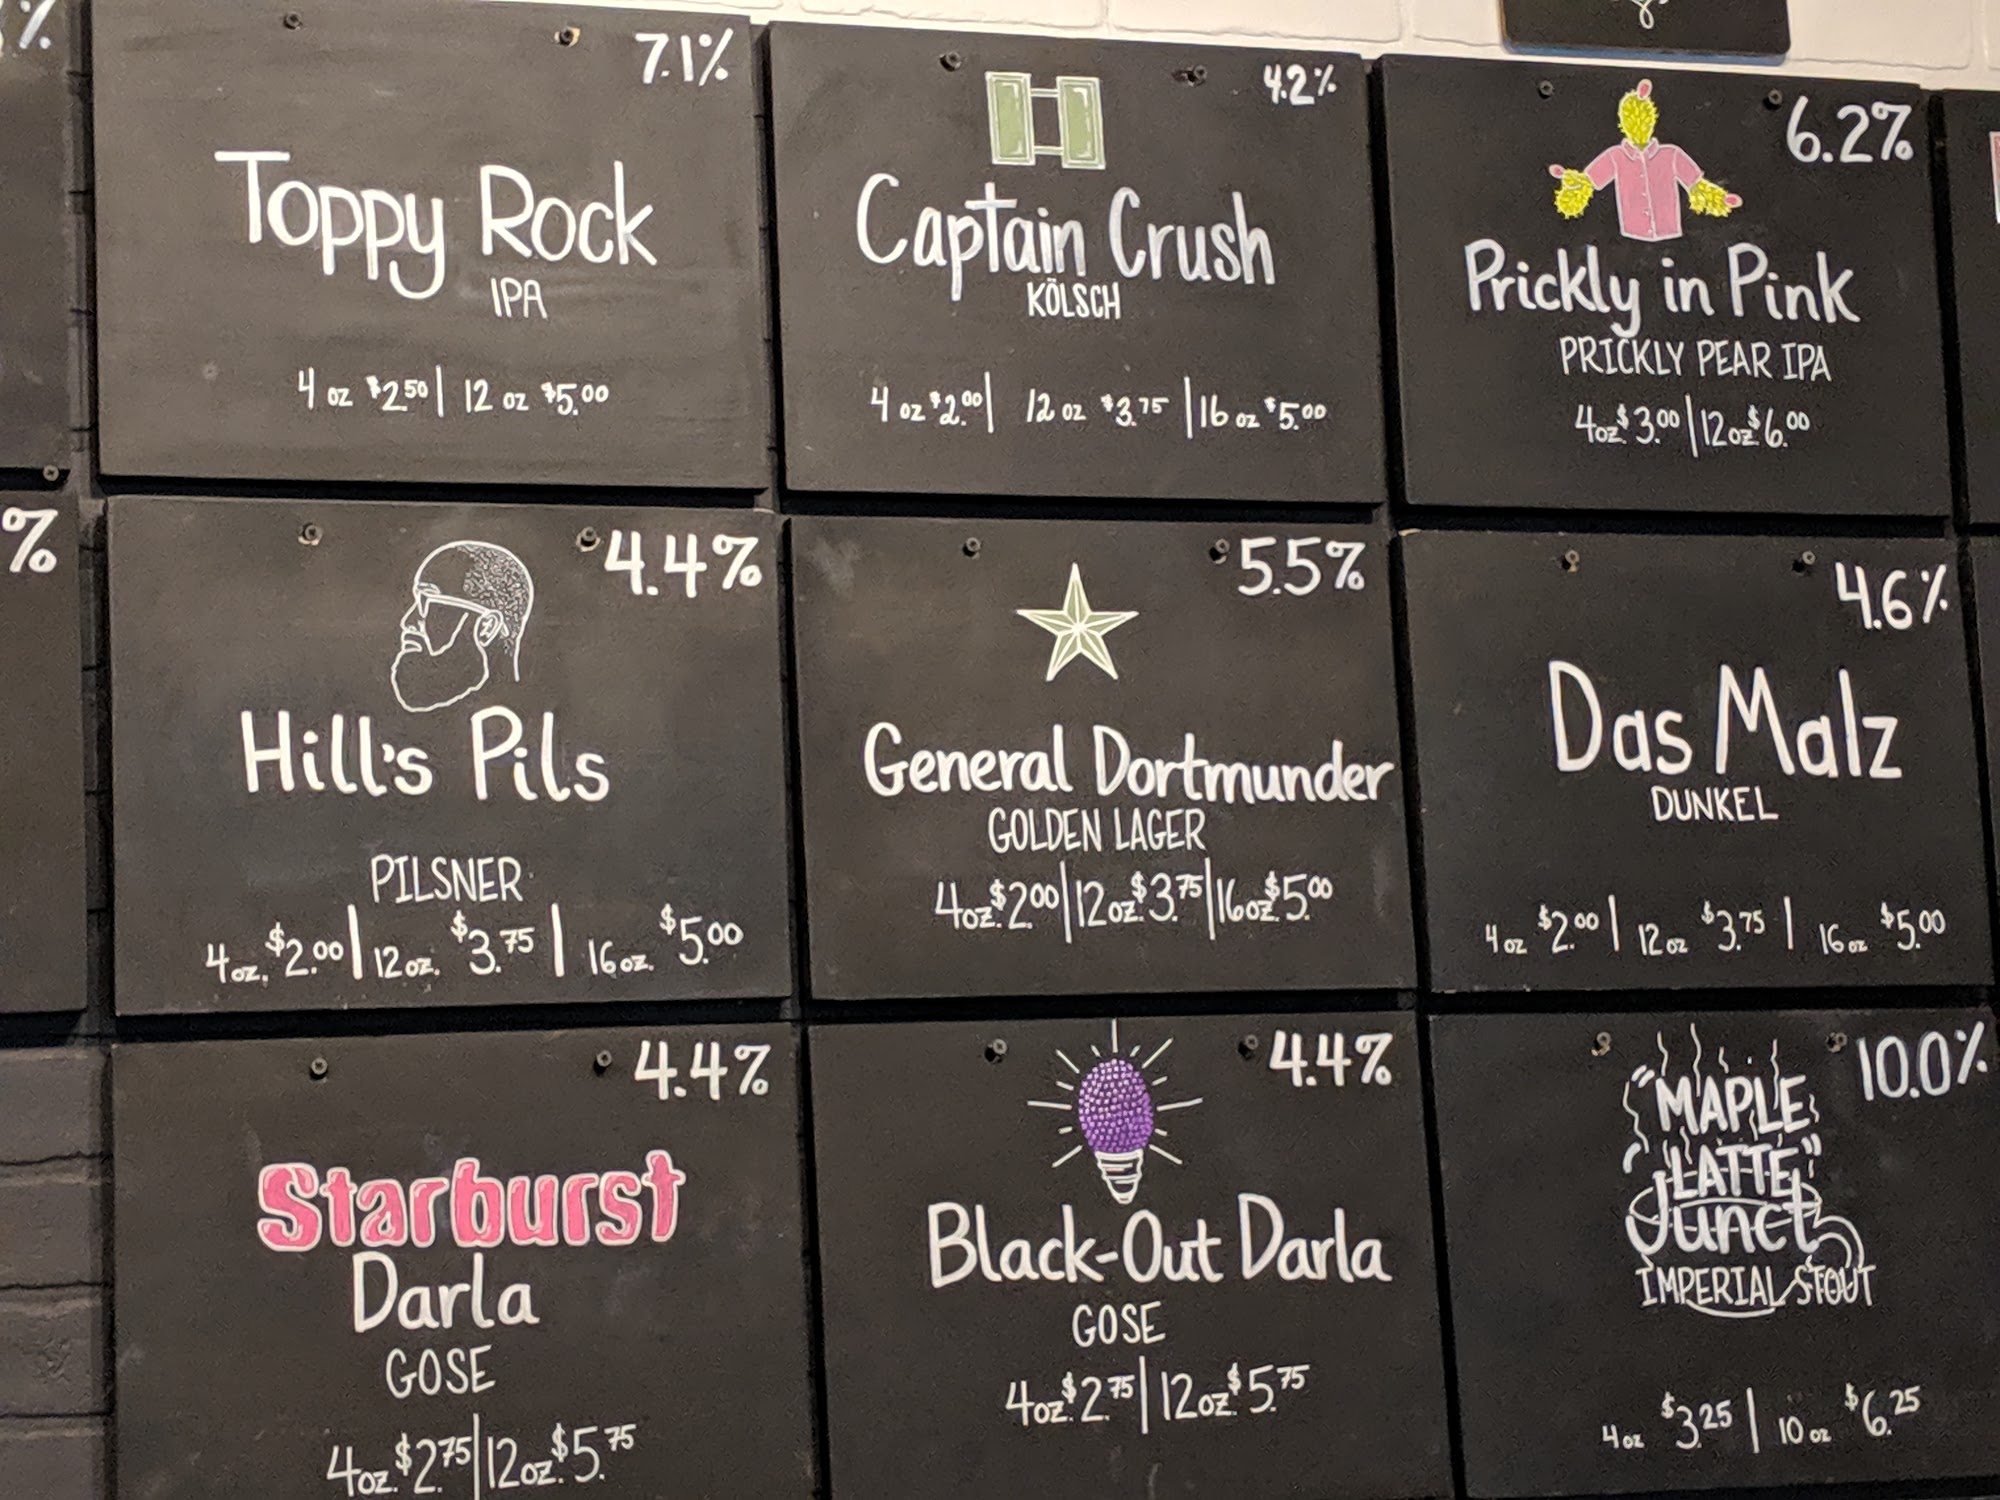 %
7.1%
Toppy Rock
IPA
4 oz $2.50 | 12 oz $5.00
4.2%
Captain Crush
KÖLSCH
4 oz $2.00 | 12 oz $3.75 | 16 oz $5.00
6.2%
Prickly in Pink
PRICKLY PEAR IPA
4oz. $3.00 | 12oz. $6.00
%
4.4%
Hill's Pils
PILSNER
4 oz. $2.00 | 12 oz. $3.75 | 16 oz. $5.00
5.5%
General Dortmunder
GOLDEN LAGER
4oz. $2.00 | 12oz. $3.75 | 16oz. $5.00
4.6%
Das Malz
DUNKEL
4 oz $2.00 | 12 oz $3.75 | 16 oz $5.00
4.4%
Starburst
Darla
GOSE
4oz. $2.75 | 12oz. $5.75
4.4%
Black-Out Darla
GOSE
4oz. $2.75 | 12oz. $5.75
10.0%
"MAPLE
LATTE"
Junct
IMPERIAL STOUT
4 oz $3.25 | 10 oz $6.25